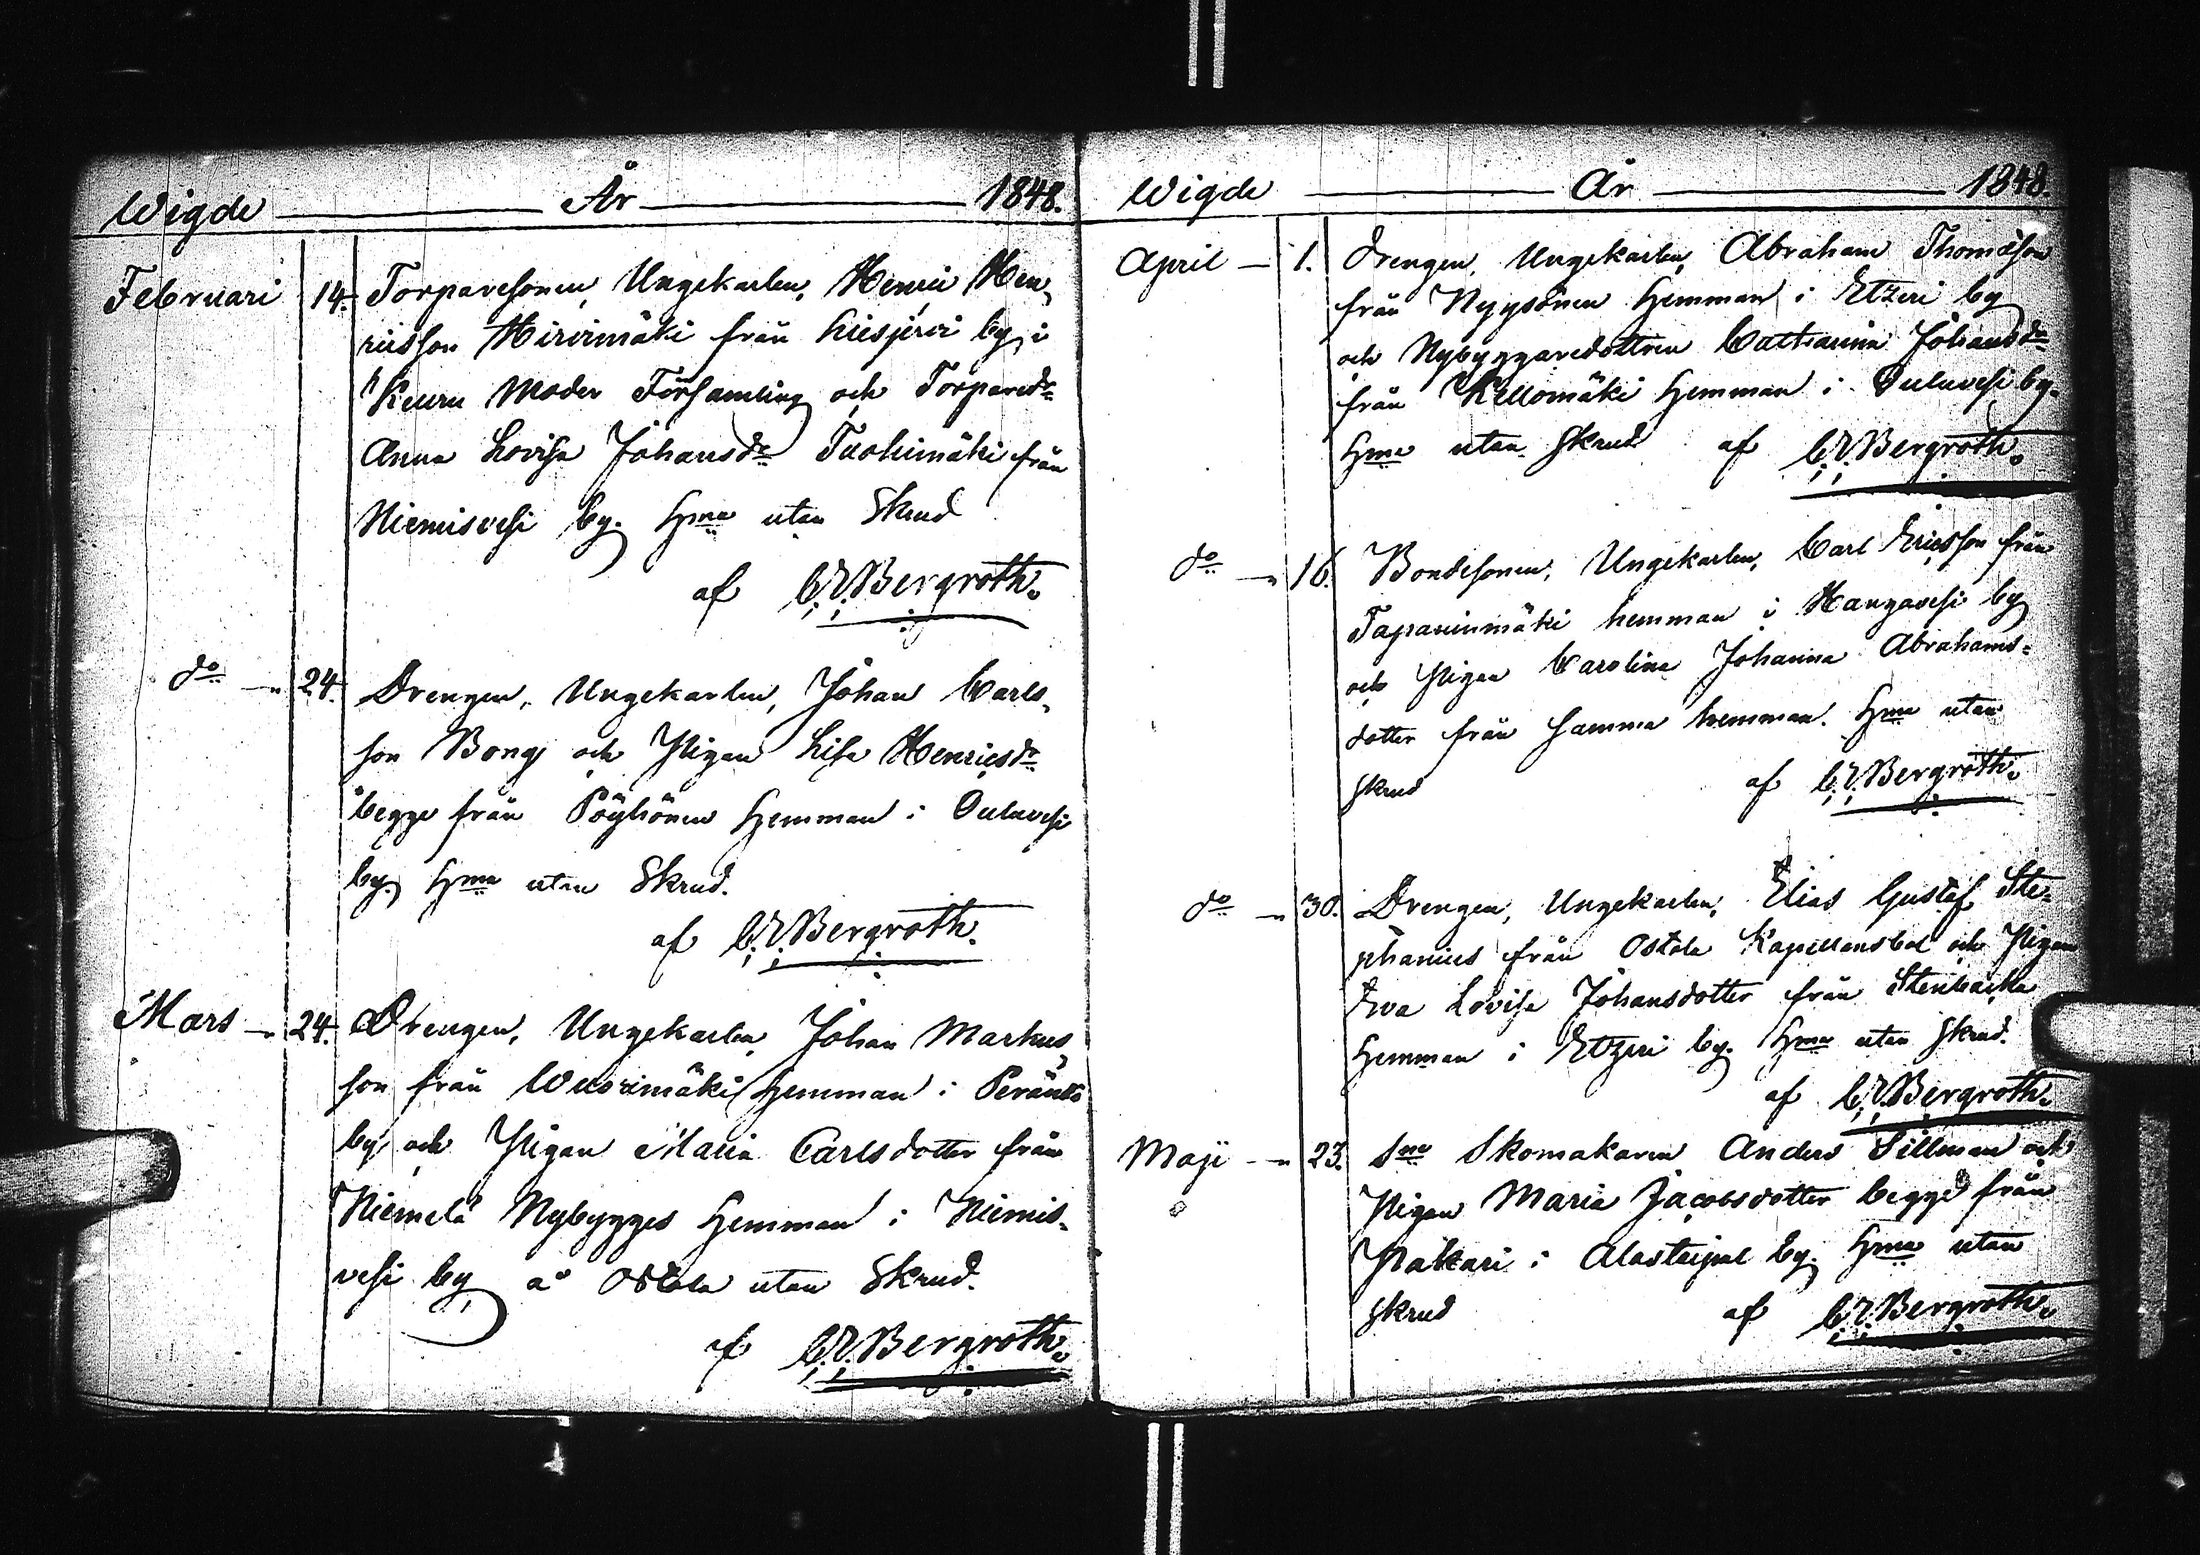 Wigde År 1848.
Februari 14. Torparesonen, Ungekarlen, Henric Hen-
ricsson Hirvimäki från Liesjervi by i
Keuru Moder Församling och Torpared:r
Anna Lovisa Johansd:r Tuohimäki från
Niemisvesi by. Hma utan Skrud
af C. E. Bergroth.
do 24. Drengen, Ungekarlen, Johan Carls-
son Bong och Pigan Lisa Henricsd:r
begge från Pöyhönen Hemman i Ouluvesi
by. Hma utan Skrud.
af C. E. Bergroth.
Mars 24. Drengen, Ungekarlen, Johan Markus-
son från Wuorimäki Hemman i Peränne
by och Pigan Maria Carlsdotter från
Niemelä Nybygges Hemman i Niemis-
vesi by å Ostola utan Skrud.
af C. E. Bergroth.
Wigde År 1848.
April 1. Drengen, Ungekarlen, Abraham Thomasson
från Nyyssönen Hemman i Etzeri by
och Nybyggaredottren Catharina Johansd:r
från Kellomäki Hemman i Ouluvesi by.
Hma utan Skrud af C. E. Bergroth.
do 16. Bondesonen, Ungekarlen, Carl Ericsson från
Tapaninmäki hemman i Hangavesi by
och Pigan Carolina Johanna Abrahams-
dotter från samma hemman. Hma utan
skrud af C. E. Bergroth.
do 30. Drengen, Ungekarlen, Elias Gustaf Ste-
phanius från Ostola Kapellansbol och Pigan
Eva Lovisa Johansdotter från Stenbacka
Hemman i Etzeri by. Hma utan Skrud.
af C. E. Bergroth.
Maji 23. Skomakaren Anders Sillman och
Pigan Maria Jacobsdotter begge från
Pakari i Alastaipal by. Hma utan
skrud af C. E. Bergroth.